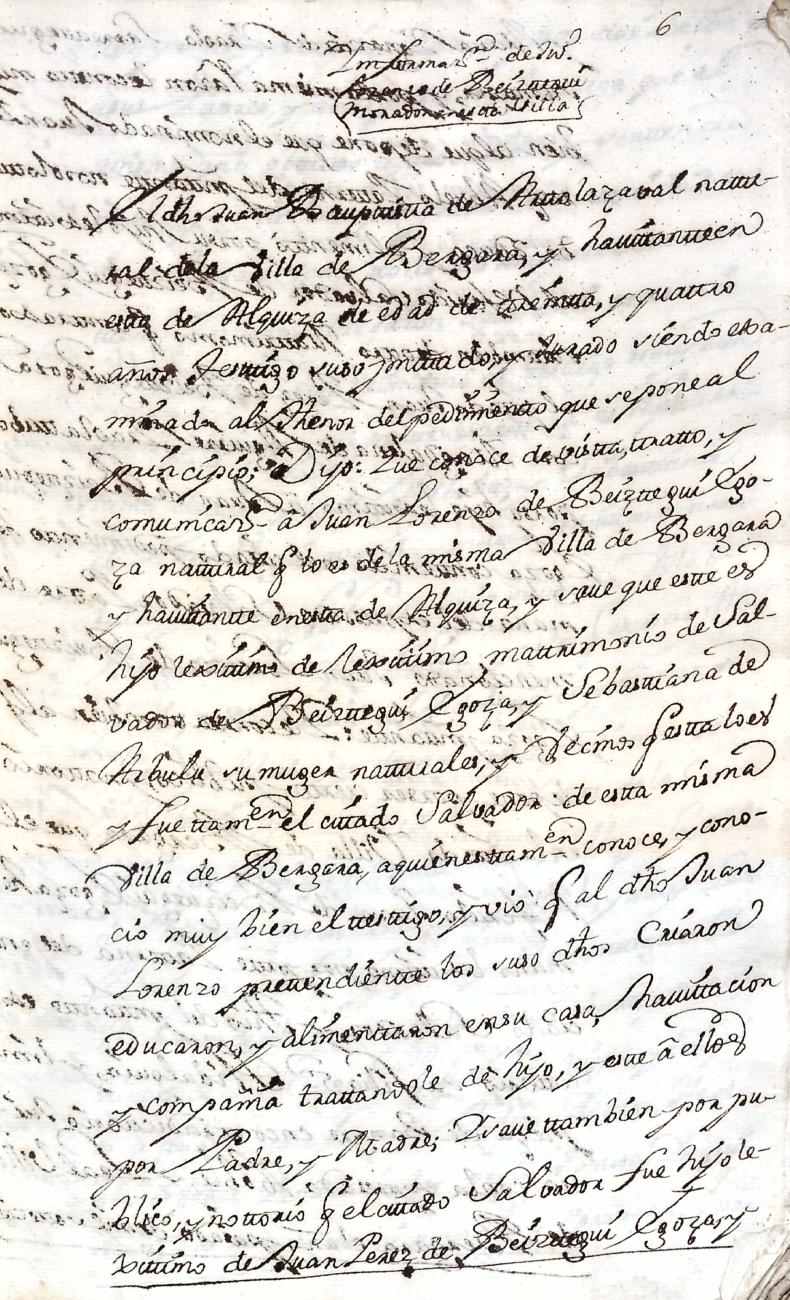 6
Imformaz.on de Ju.o
Franco de Beiztegui
Morador en esta Villa
El dho Juan Bauptista de Artolazaval nattu-
ral de la Villa de Bergara, y havittantte en
esta de Alquiza de edad de treintta, y quattro
años. Testtigo suso jnttado, y Jurado siendo exa-
minado al thenor del pedimiento que se pone al
principio; Dijo: Que conoce de vistta, tratto, y
comunicaz.on â Juan Lorenzo de Beiztegui Ego-
za nattural q lo es de la misma Villa de Bergara
y havittantte en esta de Alquiza, y save que este es
hijo lexittimo de lexittimo mattrimonio de Sal-
vador de Beiztegui Egoza, y Sebastiana de
Arbulu su muger natturales, y Vecinos q estta lo es
y fue ttam.en el cittado Salvador de esta misma
Villa de Bergara, aquienes ttam.en conoce, y cono-
cio muy bien el testtigo, y vió q al dho Juan
Lorenzo prettendientte los suso dhos Criaron
educaron, y alimenttaron en su casa, havittacion
y compañia trattandole de hijo, y este â ellos
por Padre, y Madre; Y save ttambien por pu-
blico, y nottorio q el cittado Salvador fue hijo le-
xittimo de Juan Perez de Beiztegui Egoza, y